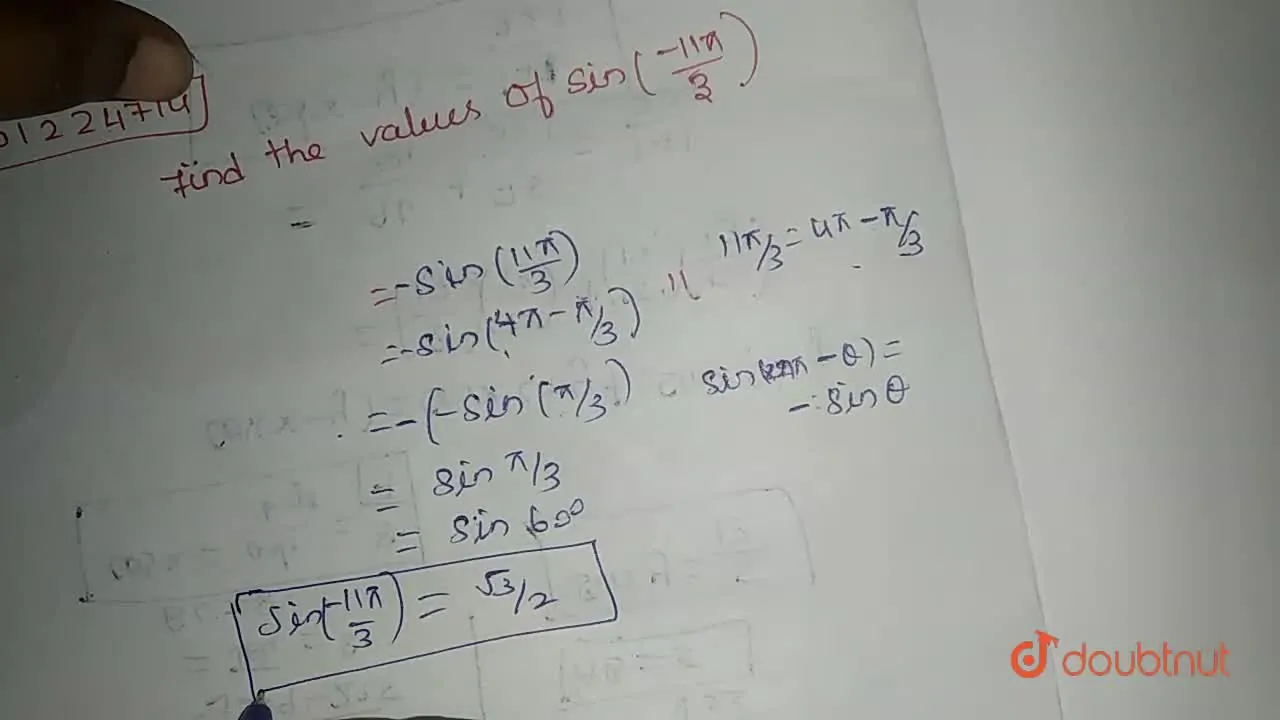 01224714
find the values of sin(-11π/3)
=
=-sin(11π/3) 11π/3=4π-π/3
=-sin(4π-π/3) ||
=-(-sin(π/3) sin(2nπ-θ)=
-sinθ
= sin π/3
= sin 60°
sin(-11π/3) = √3/2
doubtnut